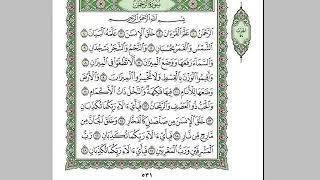 سُورَةُ الرَّحْمَٰن
بِسْمِ ٱللَّهِ ٱلرَّحْمَٰنِ ٱلرَّحِيمِ
ٱلرَّحْمَٰنُ ١ عَلَّمَ ٱلْقُرْءَانَ ٢ خَلَقَ ٱلْإِنسَٰنَ ٣ عَلَّمَهُ ٱلْبَيَانَ ٤
ٱلشَّمْسُ وَٱلْقَمَرُ بِحُسْبَانٍ ٥ وَٱلنَّجْمُ وَٱلشَّجَرُ يَسْجُدَانِ ٦
وَٱلسَّمَآءَ رَفَعَهَا وَوَضَعَ ٱلْمِيزَانَ ٧ أَلَّا تَطْغَوْا۟ فِى ٱلْمِيزَانِ ٨
وَأَقِيمُوا۟ ٱلْوَزْنَ بِٱلْقِسْطِ وَلَا تُخْسِرُوا۟ ٱلْمِيزَانَ ٩ وَٱلْأَرْضَ
وَضَعَهَا لِلْأَنَامِ ١٠ فِيهَا فَٰكِهَةٌ وَٱلنَّخْلُ ذَاتُ ٱلْأَكْمَامِ ١١
وَٱلْحَبُّ ذُو ٱلْعَصْفِ وَٱلرَّيْحَانُ ١٢ فَبِأَىِّ ءَالَآءِ رَبِّكُمَا تُكَذِّبَانِ ١٣
خَلَقَ ٱلْإِنسَٰنَ مِن صَلْصَٰلٍ كَٱلْفَخَّارِ ١٤ وَخَلَقَ ٱلْجَآنَّ مِن
مَّارِجٍ مِّن نَّارٍ ١٥ فَبِأَىِّ ءَالَآءِ رَبِّكُمَا تُكَذِّبَانِ ١٦ رَبُّ
ٱلْمَشْرِقَيْنِ وَرَبُّ ٱلْمَغْرِبَيْنِ ١٧ فَبِأَىِّ ءَالَآءِ رَبِّكُمَا تُكَذِّبَانِ ١٨
٥٣١